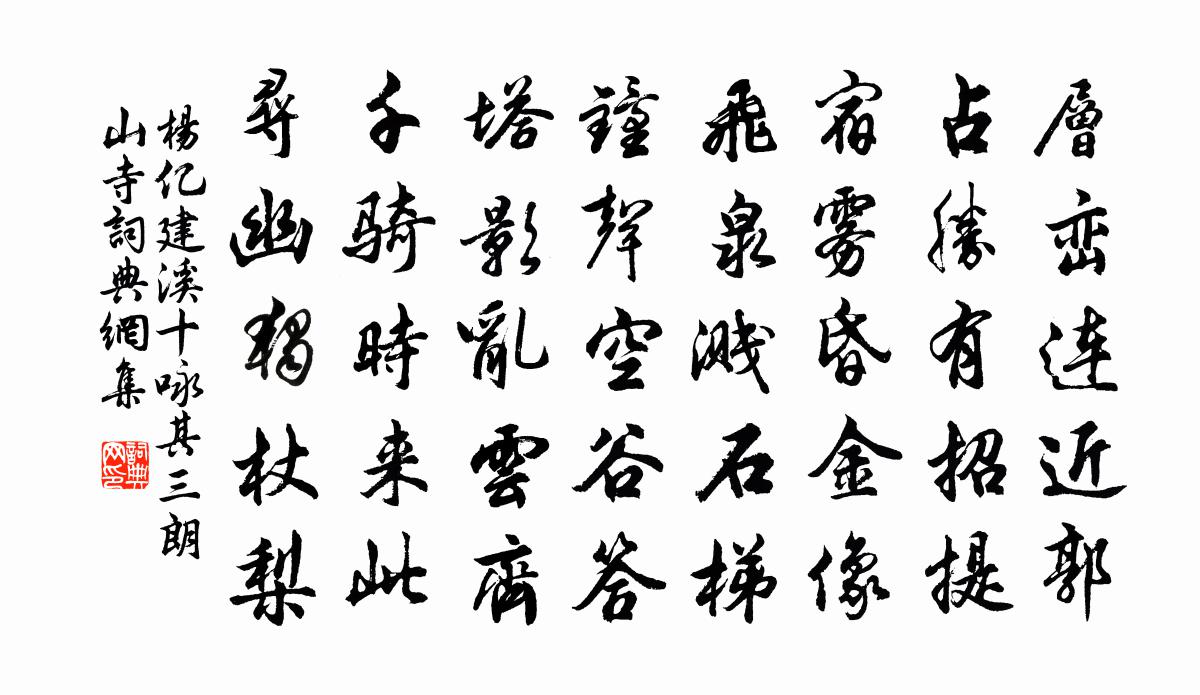 層巒连近郭
占勝有招提
宿雾昏金像
飛泉溅石梯
鐘聲空谷答
塔影亂雲齊
千骑時来此
尋幽獨杖梨
楊亿建溪十咏其三朗
山寺詞典網集
詞典
网印